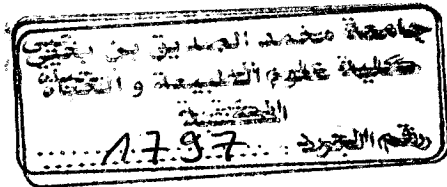 جامعة محمد الصديق بن يحيى
كلية علوم الطبيعة و الحياة
المكتبة
رقم الجرد : 1797